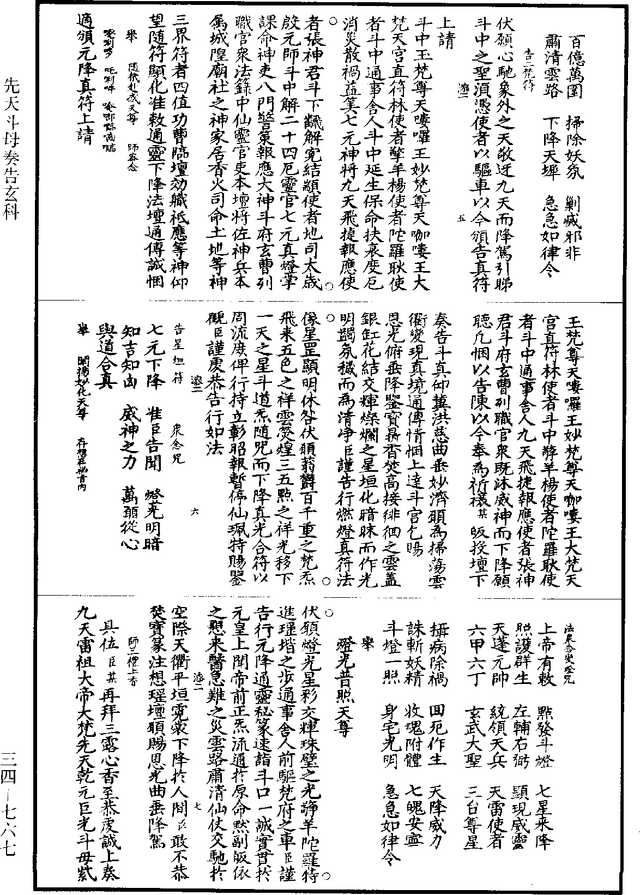 先天斗母奏告玄科
三四—七六七
百億萬國　掃除妖氛　剿滅邪非
肅清雲路　下降天墀　急急如律令
告二梵符
伏願心馳象外之天敬迓九天而降駕引睇
斗中之聖須憑使者以驅車以今頒告真符
上請
斗中王梵尊天嘍囉王妙梵尊天咖嘍王大
梵天宮直符林使者擎羊楊使者陀羅耿使
者斗中通事舍人斗中延生保命扶衰度厄
消災散禍益筭七元神將九天飛捷報應使
者張神君斗下
解冤結
使者地司太歲
殷元帥斗中解二十四厄靈官七元真燈掌
課命神吏八門警
報應大神斗府玄曹列
職官衆法籙中仙靈官吏本壇將佐神兵本
属城隍廟社之神家居香火司命土地等神
三界符者四值功曹臨壇効職祗應等神仰
望隨符顯化准敕通靈下降法壇通傳誠悃
舉　隨依赴感天尊　師容念
適頒元降真符上請
王梵尊天嘍囉王妙梵尊天咖嘍王大梵天
宮直符林使者斗中擎羊楊使者陀羅耿使
者斗中通事舍人九天飛捷報應使者張神
君斗府玄曹列職官衆既沐威神而下降願
聽凢悃以告陳以今奉為祈禳某皈投壇下
奏告斗真仰冀洪慈曲垂妙濟頭為掃蕩雲
衢變現真境通傳情悃上達斗宮乞暘
恩光俯垂降鑒寶鼎香焚高接徘徊之雲蓋
銀缸花結交輝燦爛之星垣化暗昧而作光
明蠲氛穢而為清净臣謹告行燃燈真符法
像星罡顯明休咎伏願蓊欝百千重之梵炁
飛来五色之祥雲熒煌三五點之祥光移下
一天之星斗道炁隨呪而下降真光合符以
周流庶俾行持立彰昭報暫停仙珮持賜鑒
觀臣謹慶恭告行如法
告星垣符　衆念咒
七元下降　准臣告聞　燈光明暗
知吉知凶　威神之力　萬願從心
與道合真
舉　開揚妙化天尊
上帝有敕　點發斗燈　七星来降
照護群生　左輔右弼　顯現威靈
天蓬元帥　統領天兵　天雷使者
六甲六丁　玄武大聖　三台尊星
攝病除禍　回厄作生　天降威力
誅斬妖精　收魂附體　七魄安寧
斗燈一照　身宅光明　急急如律令
舉
燈光普照天尊
伏願燈光星彩交輝珠璧之光擎羊陀羅待
進瑾堦之步通事舍人前驅梵府之車臣謹
告行元降通靈秘篆速詣斗口一誠實貫於
元皇上聞帝前正炁流通於原命默副皈依
之懇来醫急難之災雲路肅清仙仗交馳於
空際天衢平坦霓裳下降於人間臣敢不恭
焚寶篆注想瑶壇頭賜恩光曲垂降駕
師三禮上香
具位臣某再拜三露心香至恭虔誠上奏
九天雷祖大帝大梵先天乾元巨光斗母紫